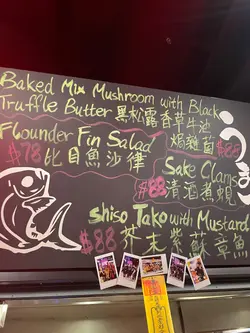 Baked Mix Mushroom with Black
Truffle Butter 黑松露香草牛油
焗雜菌 $88
Flounder Fin Salad
$78 比目魚沙律
Sake Clams
$88 清酒煮蜆
Shiso Tako with Mustard
$88 芥末紫蘇章魚